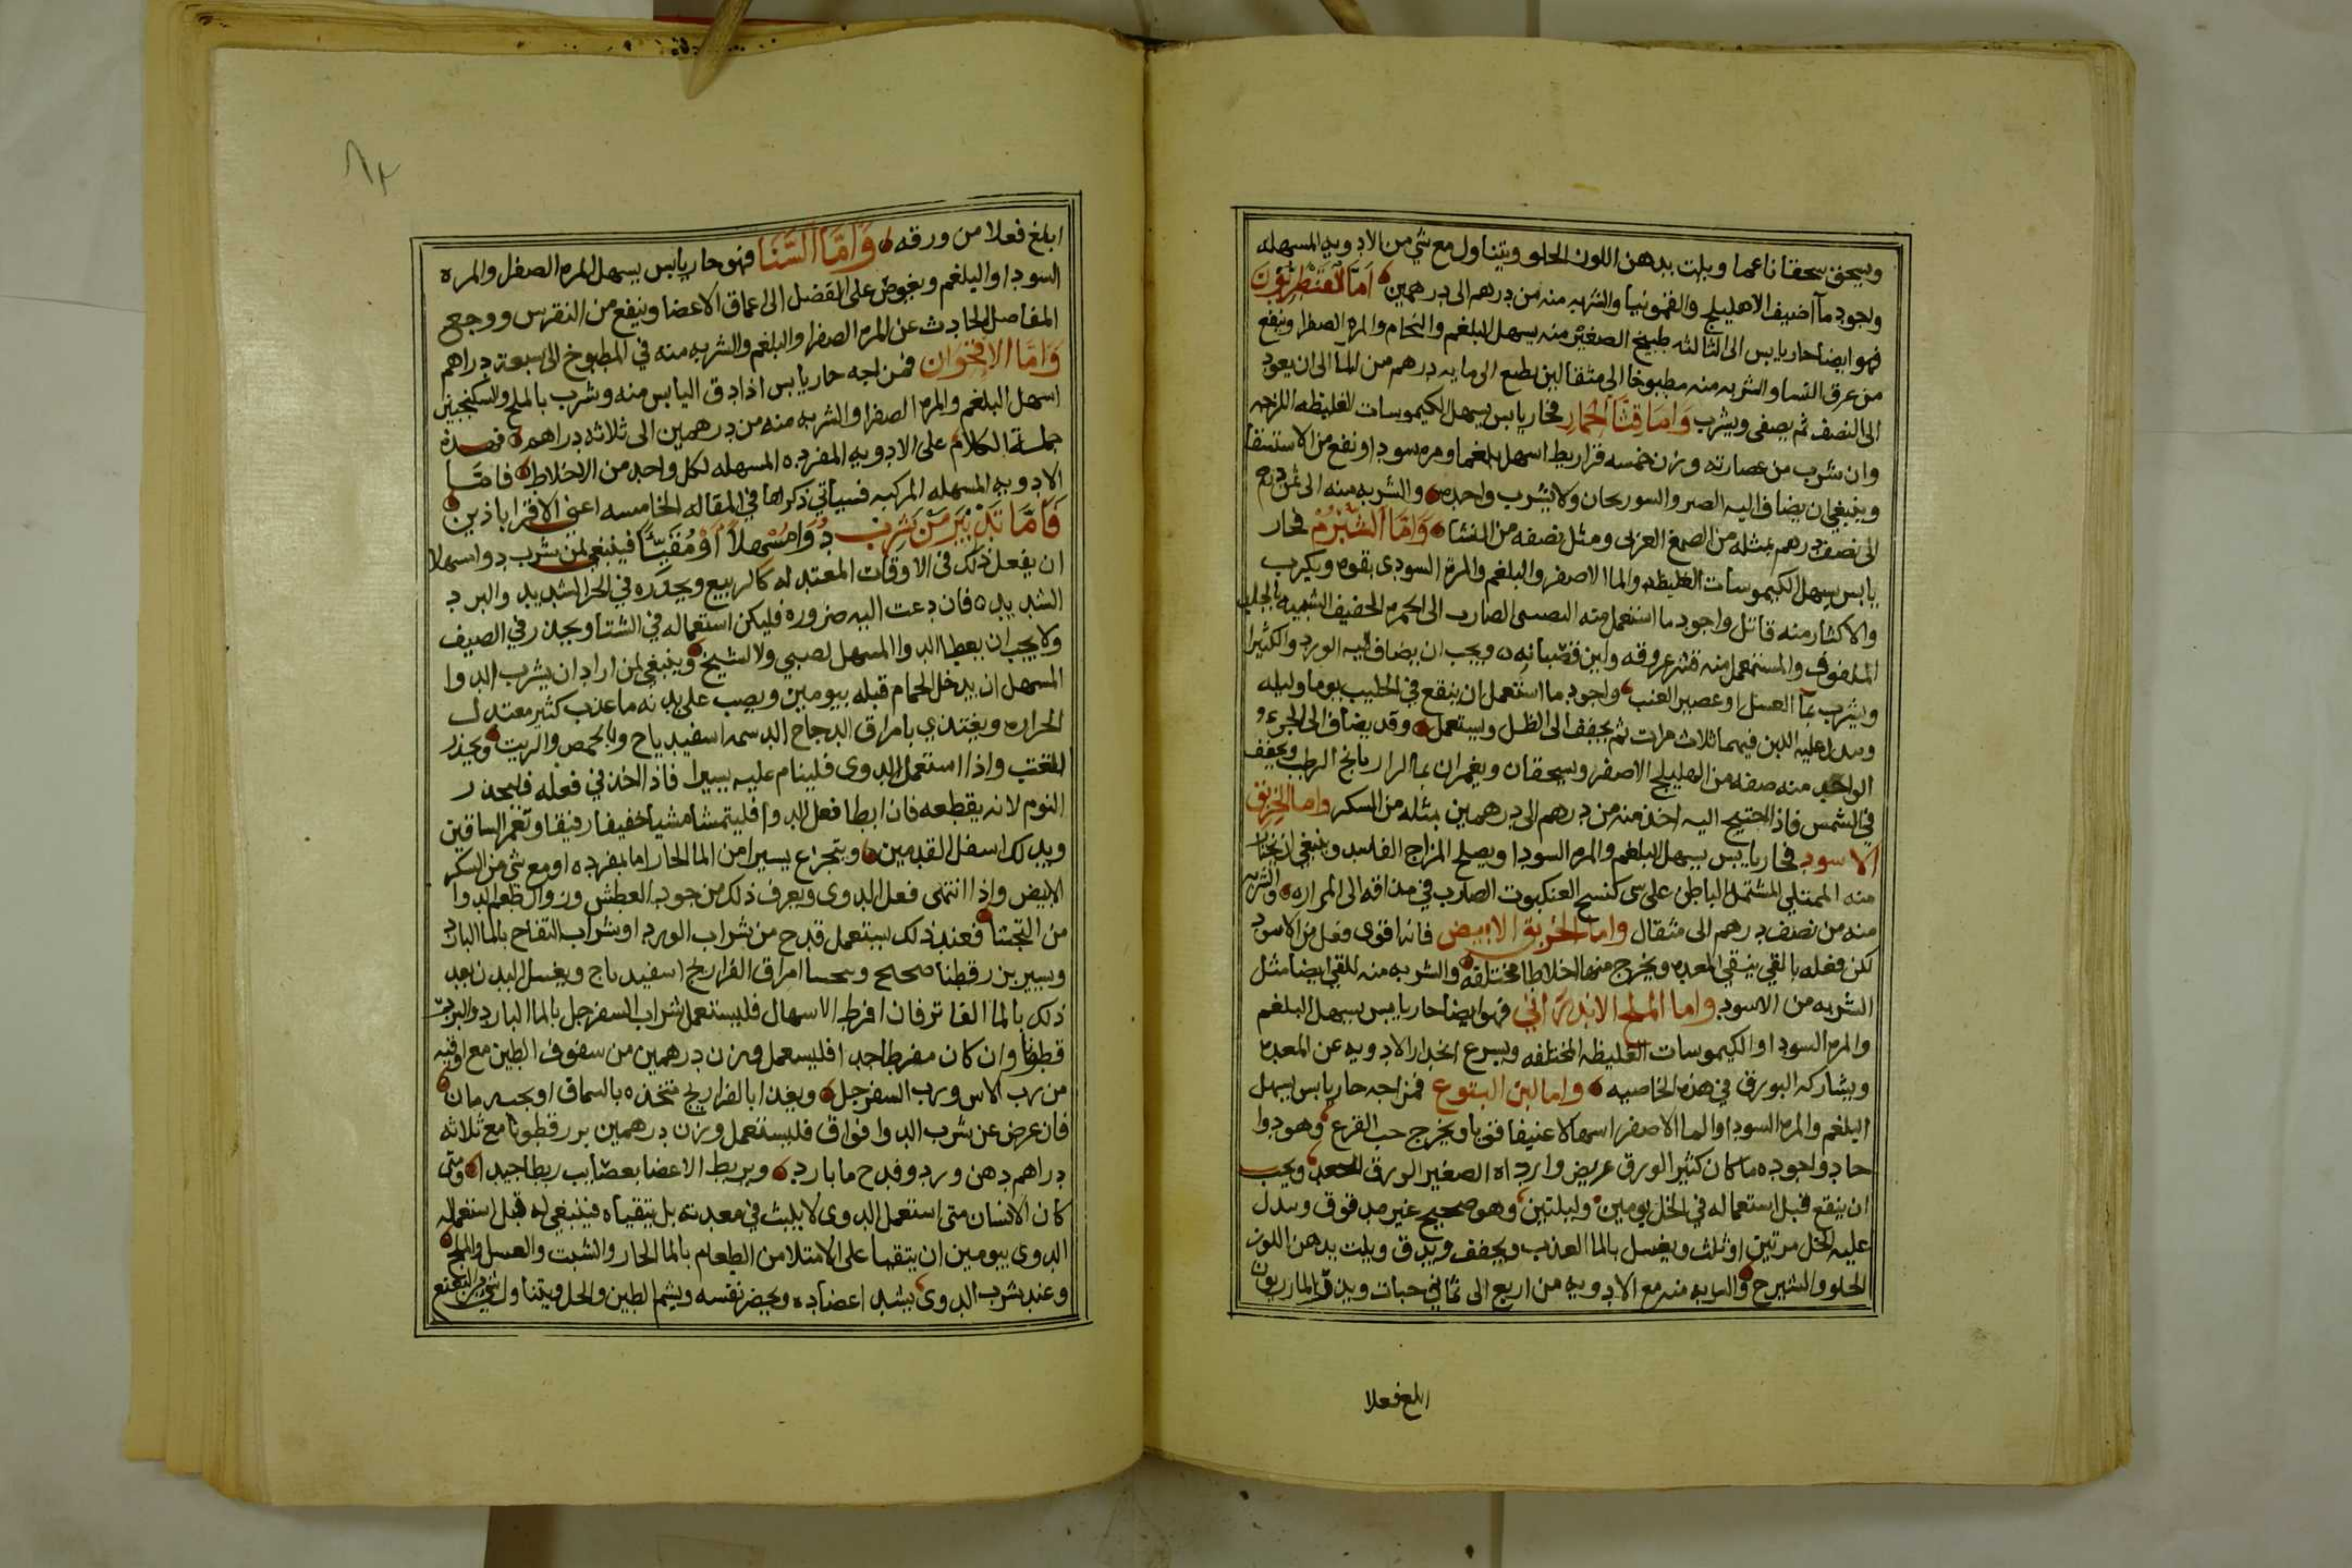 ويسحق سحقا ناعما ويلت بدهن اللوز الحلو ويتناول مع شي من الادويه المسهله
واجود ما اضيف الاهليلج والقمونيا والشربه منه من درهم الى درهمين اما القنطريون
فهو ايضا حار يابس الى الثالثه طبيخ الصغير منه يسهل البلغم والخام والمره الصفرا وينفع
من عرق النسا والشربه منه مطبوخا الى مثقالين يطبع الى مايه درهم من الما الى ان يعود
الى النصف ثم يصفى ويشرب واما قثا الحمار فحار يابس يسهل الكيموسات الغليظه اللزجه
وان شرب من عصارته وزن خمسه قراريط اسهل بلغما ومره سودا ونفع من الاستسقا
وينبغي ان يضاف اليه الصبر والسورنجان ولا يشرب واحده والشربه منه الى ثمن درهم
الى نصف درهم بمثله من الصمغ العربى ومثل نصفه من النشا واما الشبرم فحار
يابس يسهل الكيموسات الغليظه والما الاصفر والبلغم والمره السودى بقوه ويكرب
والاكثار منه قاتل واجود ما استعمل منه الصارب الى الحمره الخفيف الشبيه بالجلد
الملفوف والمستعمل منه قشر عروقه ولبن قضبانه ويجب ان يضاف اليه الورد والكثيرا
ويشرب بما العسل او عصير العنب واجود ما استعمل ان ينقع في الحليب يوما وليله
ويبدل عليه اللبن فيهما ثلاث مرات ثم يجفف الى الظل ويستعمل وقد يضاف الى الجزء
الواحد منه صفه من الهليلج الاصفر ويسحقان ويغمران بما الرازيانج الرطب ويجفف
في الشمس فاذا احتيج اليه اخذ منه من درهم الى درهمين بمثله من السكر واما الخربق
الاسود فحار يابس يسهل البلغم والمره السودا ويصلح المزاج الفاسد وينبغي ان يختار
منه الممتلي المشتمل الباطن على شي كنسج العنكبوت الصلاب في مذاقه الى المراره والشربه
منه من نصف درهم الى مثقال واما الخربق الابيض فانه اقوى فعل من الاسود
لكن فعله بالقي ينقي المعده ويخرج منها اخلاطا مختلفه والشربه منه للقي ايضا مثل
الشربه من الاسود واما الملح الاندراني فهو ايضا حار يابس يسهل البلغم
والمره السودا والكيموسات الغليظه المختلفه ويسرع انحدار الادويه عن المعده
ويشاركه البورق في هذه الخاصيه واما لبن اليتوع فمزاجه حار يابس يسهل
البلغم والمره السودا والما الاصفر اسهالا عنيفا قويا ويخرج حب القرع وهو دوا
حاد واجوده ما كان كثير الورق عريض وارداه الصغير الورق الجعد ويجب
ان ينقع قبل استعماله في الخل يومين وليلتين وهو صحيح غير مدقوق ويبدل
عليه الخل مرتين او ثلث ويغسل بالما العذب ويجفف ويدق ويلت بدهن اللوز
الحلو والشيرج والشربه منه مع الادويه من اربع الى ثماني حبات ويدق المازريون
ابلغ فعلا
٨٢
ابلغ فعلا من ورقه واما السنا فهو حار يابس يسهل المره الصفرا والمره
السودا والبلغم ويغوص على الفضل الى اعماق الاعضا وينفع من النقرس ووجع
المفاصل الحادث عن المره الصفرا والبلغم والشربه منه في المطبوخ الى سبعة دراهم
واما الاقحوان فمزاجه حار يابس اذا دق اليابس منه وشرب بالملح والسكنجبين
اسهل البلغم والمره الصفرا والشربه منه من درهمين الى ثلاثه دراهم فهذه
جملة الكلام على الادويه المفرده المسهله لكل واحد من الاخلاط فاما
الادويه المسهله المركبه فسياتي ذكراها في المقاله الخامسه اعني الاقراباذين
فاما تدبير من شرب دوا مسهلا او مقيئا فينبغي لمن شرب دوا سهلا
ان يفعل ذلك في الاوقات المعتدله كالربيع ويحذره في الحر الشديد والبرد
الشديد فان دعت اليه ضروره فليكن استعماله في الشتا ويحذر في الصيف
ولا يجب ان يعطا الدوا المسهل لصبي ولا لشيخ وينبغي لمن اراد ان يشرب الدوا
المسهل ان يدخل الحمام قبله بيومين ويصب على بدنه ما عذب كثير معتدل
الحراره ويغتذي بامراق الدجاج الدسمه اسفيدباج وبالحمص والزيت ويحذر
التعب واذا استعمل الدوى فلينام عليه يسيرا فاذا اخذ في فعله فليحذر
النوم لانه يقطعه فان ابطا فعل الدوا فليتمشا مشيا خفيفا رفيقا وتغمر الساقين
ويدلك اسفل القدمين ويتجرع يسيرا من الما الحار اما بمفرده او مع شي من السكر
الابيض واذا انتهى فعل الدوى ويعرف ذلك من جود العطش وزوال طعم الدوا
من التجشا فعند ذلك يستعمل قدح من شراب الورد او شراب التفاح بالما البارد
وبسير بزرقطنا صحيح ويحسا امراق الفراريج اسفيدباج ويغسل البدن بعد
ذلك بالما الفاتر فان افرط الاسهال فليستعمل شراب السفرجل بالما البارد والبزر
قطونا وان كان مفرطا جدا فليسعمل وزن درهمين من سفوف الطين مع اوقيه
من رب الاس ورب السفرجل ويغذا بالفراريج متخذه بالسماق او بحب رمان
فان عرض عن شرب الدوا فواق فليستعمل وزن درهمين بزرقطونا مع ثلاثه
دراهم دهن ورد وقدح ما بارد ويربط الاعضا بعصايب ربطا جيدا ومتى
كان الانسان متى استعمل الدوى لا يلبث في معدته بل يتقياه فينبغي له قبل استعماله
الدوى بيومين ان يتقيا على الامتلا من الطعام بالما الحار والشبت والعسل والملح
وعند شرب الدوى يشد اعضاده ويحضر نفسه ويشم الطين والخل ويتناول شي من النعنع